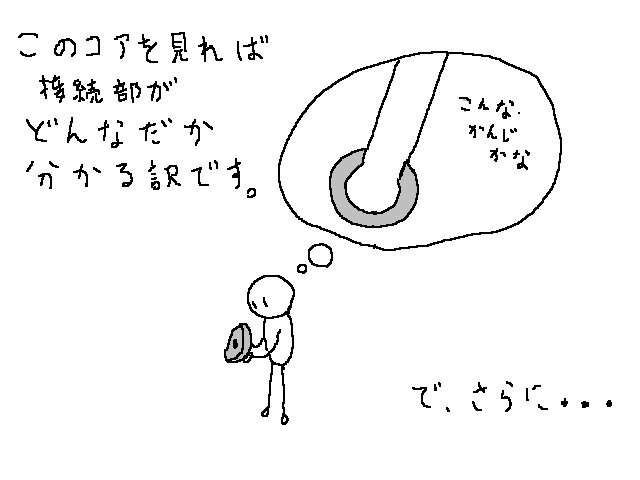 このコアを見れば
接続部が
どんなだか
分かる訳です。
こんな
かんじ
かな
で、さらに・・・